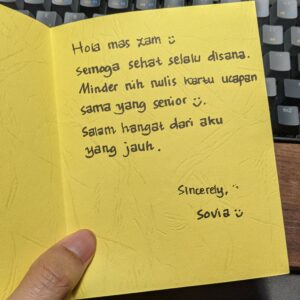 Hola mas zam ☺
semoga sehat selalu disana.
Minder nih nulis kartu ucapan
sama yang senior ☺.
Salam hangat dari aku
yang jauh.
Sincerely,
Sovia ☺